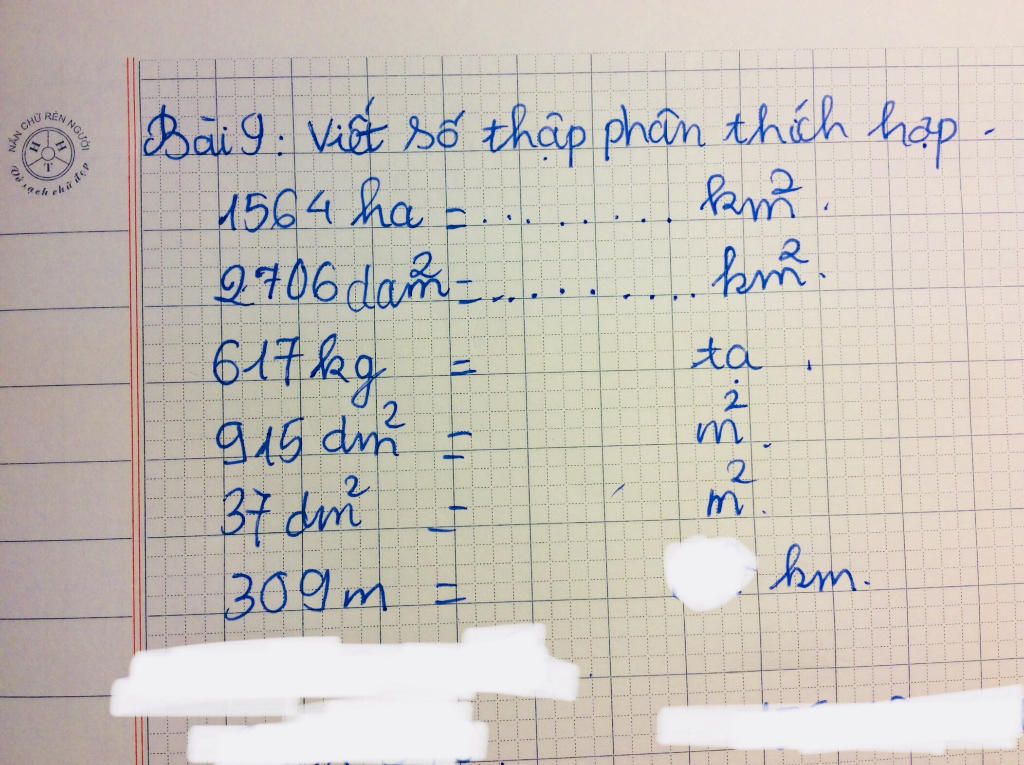 NẮN CHỮ RÈN NGƯỜI
H H
T
Để sạch chữ đẹp
Bài 9: Viết số thập phân thích hợp.
1564 ha = ......... km².
2706 dam² = ......... km².
617 kg = tạ.
915 dm² = m².
37 dm² = m².
309 m = km.